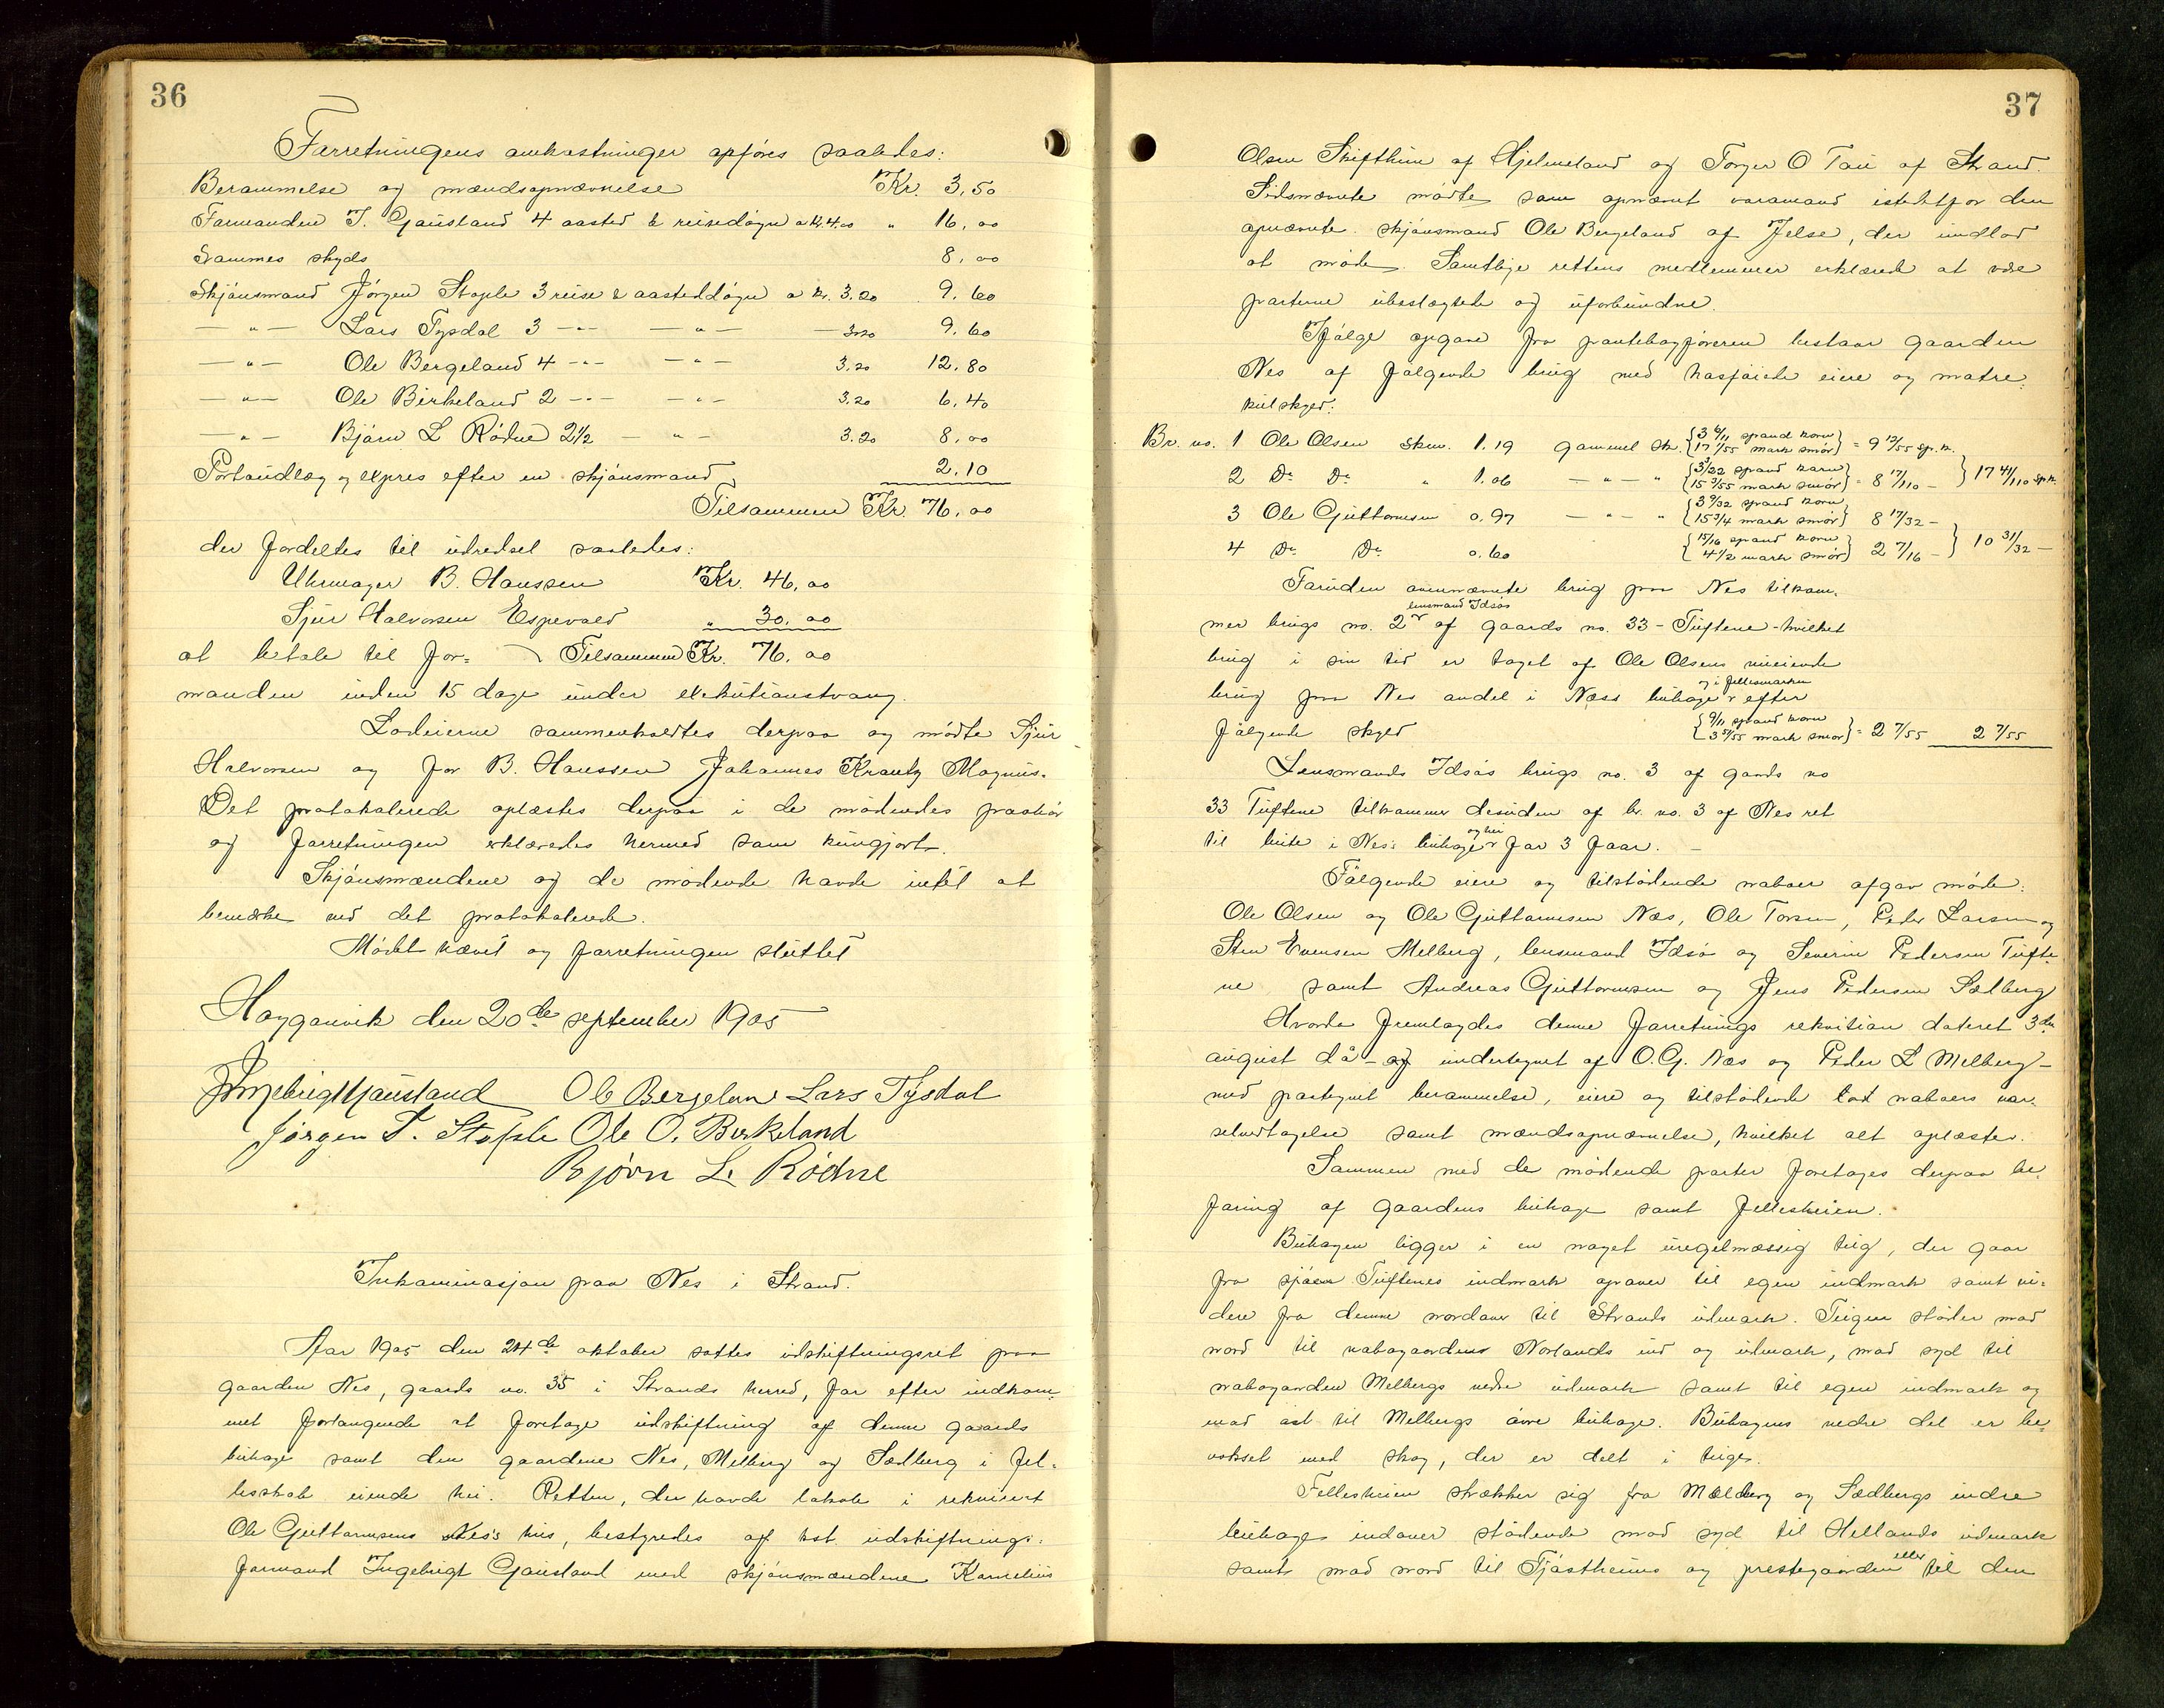 36
Forretningens omkostninger opføres saaledes:
Berammelse og mændsopnævnelse Kr. 3,50
Formanden I. Gausland 4 aasted & reisedøgn a kr. 4.00 " 16,00
Sammes skyds 8,00
Skjønsmand Jørgen Stople 3 reise & aasteddøgn a kr. 3.20 9.60
— " — Lars Tysdal 3 — " — — " — — 3.20 9.60
— " — Ole Bergeland 4 — " — — " — 3.20 12.80
— " — Ole Birkeland 2 — " — — " — 3.20 6.40
— " — Bjørn L Rødne 2½ — " — 3.20 8,00
Portoudlæg og expres efter en skjønsmand 2.10
Tilsammen Kr. 76,00
der fordeltes til udredsel saaledes:
Uhrmager B. Hanssen Kr. 46,00
Sjur Halvorsen Espevold " 30,00
at betale til for- Tilsammen Kr. 76,00
manden inden 15 dage under exekutionstvang.
Lodeierne sammenkaldtes derpaa og mødte Sjur
Halvorsen og for B. Hanssen Johannes Krantz Magnus.
Det protokolerede oplæstes derpaa i de mødendes paahør
og forretningen erklæredes hermed som kungjort.
Skjønsmændene og de mødende havde intet at
bemerke ved det protokolerede.
Mødet hævet og forretningen sluttet
Hogganvik den 20de september 1905
Ingebrigt Gausland Ole Bergeland Lars Tysdal
Jørgen T. Stople Ole O. Birkeland
Bjørn L. Rødne
Inkaminasjon paa Nes i Strand.
Aar 1905 den 24de oktober sattes udskiftningsret paa
gaarden Nes, gaards no. 35 i Strands herred, for efter indkom-
met forlangende at foretage udskiftning af denne gaards
buhage samt den gaardene Nes, Melberg og Sædberg i fel-
lesskab eiende hei. Retten, der havde lokale i rekvirent
Ole Guttormsens Nes's hus, bestyredes af kst. udskiftnings-
formand Ingebrigt Gausland med skjønsmændene Kornelius
37
Olsen Skifthun af Hjelmeland og Torger O Tau af Strand.
Sidsnævnte mødte som opnævnt varamand istedetfor den
opnævnte skjønsmand Ole Bergeland af Jelse, der undlod
at møde. Samtlige rettens medlemmer erklærede at være
parterne ubeslægtede og uforbundne.
Ifølge opgave fra pantebogføreren bestaar gaarden
Nes af følgende brug med hosføiede eiere og matre-
kulskyld:
Br. no. 1 Ole Olsen Skm. 1.19 gammel sk. {3 6/11 spand korn 17 1/55 mark smør} = 9 13/55 sp. k.
2 Do Do " 1.06 — " — " {3 3/22 spand korn 15 3/55 mark smør} = 8 17/110 — } 17 41/110 sp. k.
3 Ole Guttormsen 0.97 — " — " {3 9/32 spand korn 15 3/4 mark smør} 8 17/32 —
4 Do Do 0.60 {15/16 spand korn 4 1/2 mark smør} 2 7/16 — } 10 31/32 —
Foruden ovennævnte brug paa Nes tilkom-
mer lensmand Idsøs brugs no. 2 af gaards no. 33 - Tuftene - hvilket
brug i sin tid er taget af Ole Olsens nueiende
brug paa Nes andel i Næss buhage og i fellesmarken efter
følgende skyld {9/11 spand korn 3 51/55 mark smør} = 2 7/55 2 7/55
Lensmands Idsøs brugs no. 3 af gards no
33 Tuftene tilkommer desuden af br. no. 3 af Nes ret
til beite i Nes's buhage og hei for 3 faar. —
Følgende eiere og tilstødende naboer afgav møde:
Ole Olsen og Ole Guttormsen Næs, Ole Torsen, Peder Larsen og
Sten Evensen Melberg, lensmand Idsø og Severin Pedersen Tufte-
ne samt Andreas Guttormsen og Jens Pedersen Sædberg
Hvorda fremlagdes denne forretnings rekvisition dateret 3die
august då - og undertegnet af O.G. Næs og Peder L Melberg -
med paategnet berammelse, eiere og tilstødende lod naboers var-
selvedtagelse samt mændsopnævnelse, hvilket alt oplæstes.
Sammen med de mødende parter foretoges derpaa be-
faring af gaardens buhage samt fellesheien.
Buhagen ligger i en noget uregelmæssig teig, der gaar
fra sjøen Tuftenes indmark opover til egen indmark samt vi-
dere fra denne nordover til Strands udmark. Teigen støder mod
nord til nabogaardens Norlands ind og udmark, mod syd til
nabogaarden Melbergs nedre udmark samt til egen indmark og
mod øst til Melbergs øvre buhage. Buhagens nedre del er be-
vokset med skog, der er delt i teiger.
Fellesheien strækker sig fra Mælberg og Sædbergs indre
buhage indover stødende mod syd til Hellands udmark
samt mod nord til Fjøstheims og prestegaarden eller til den